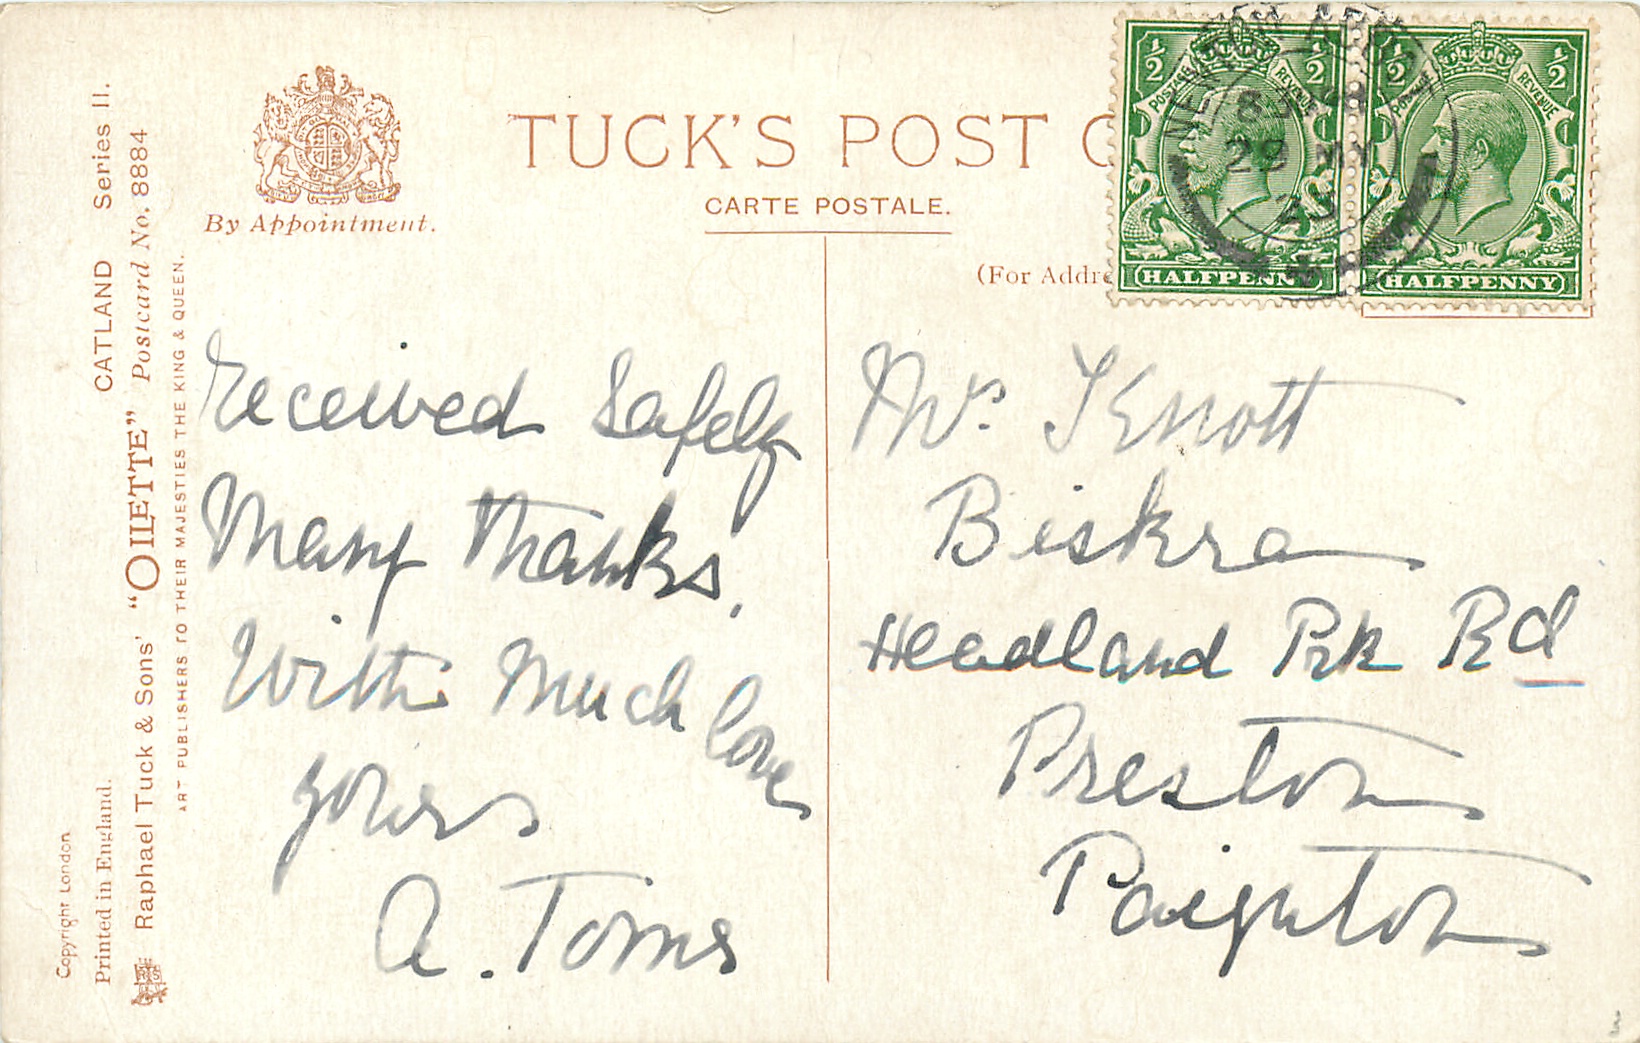 TUCK'S POST C
CARTE POSTALE.
(For Addre
By Appointment.
CATLAND Series II.
Raphael Tuck & Sons' "OILETTE" Postcard No. 8884
ART PUBLISHERS TO THEIR MAJESTIES THE KING & QUEEN.
Copyright London
Printed in England.
½ ½
POSTAGE REVENUE
HALFPENNY
½ ½
POSTAGE REVENUE
HALFPENNY
29 MY
Received Safely
Many thanks,
With Much love
yours
A. Toms
Mrs Knott
Biskra
Headland Prk Rd
Preston
Paignton
3